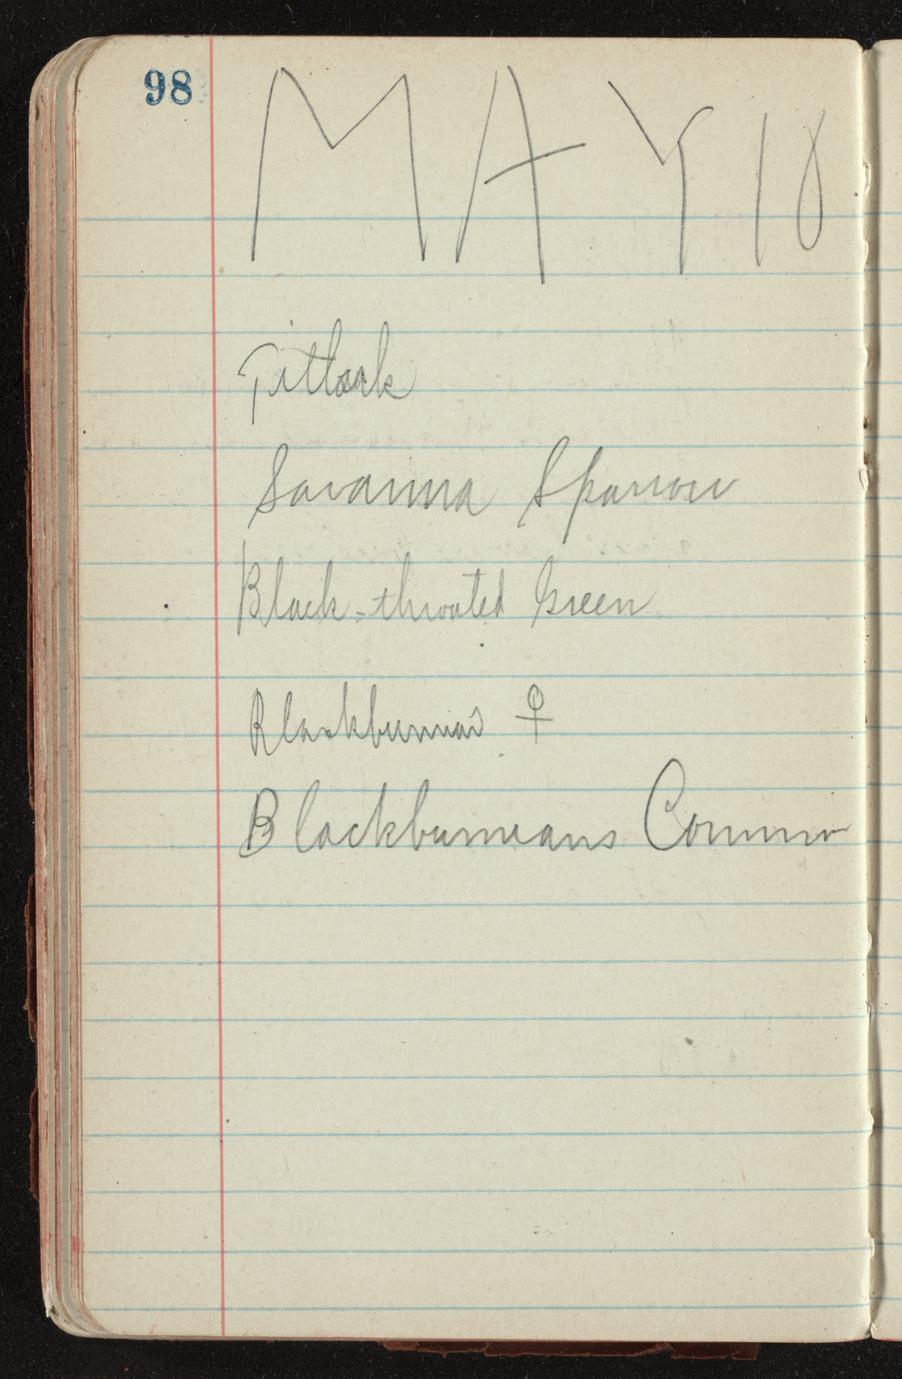 98
MAY 10
Titlark
Savanna Sparrow
Black-throated Green
Blackburnian ♀
Blackburnians Common